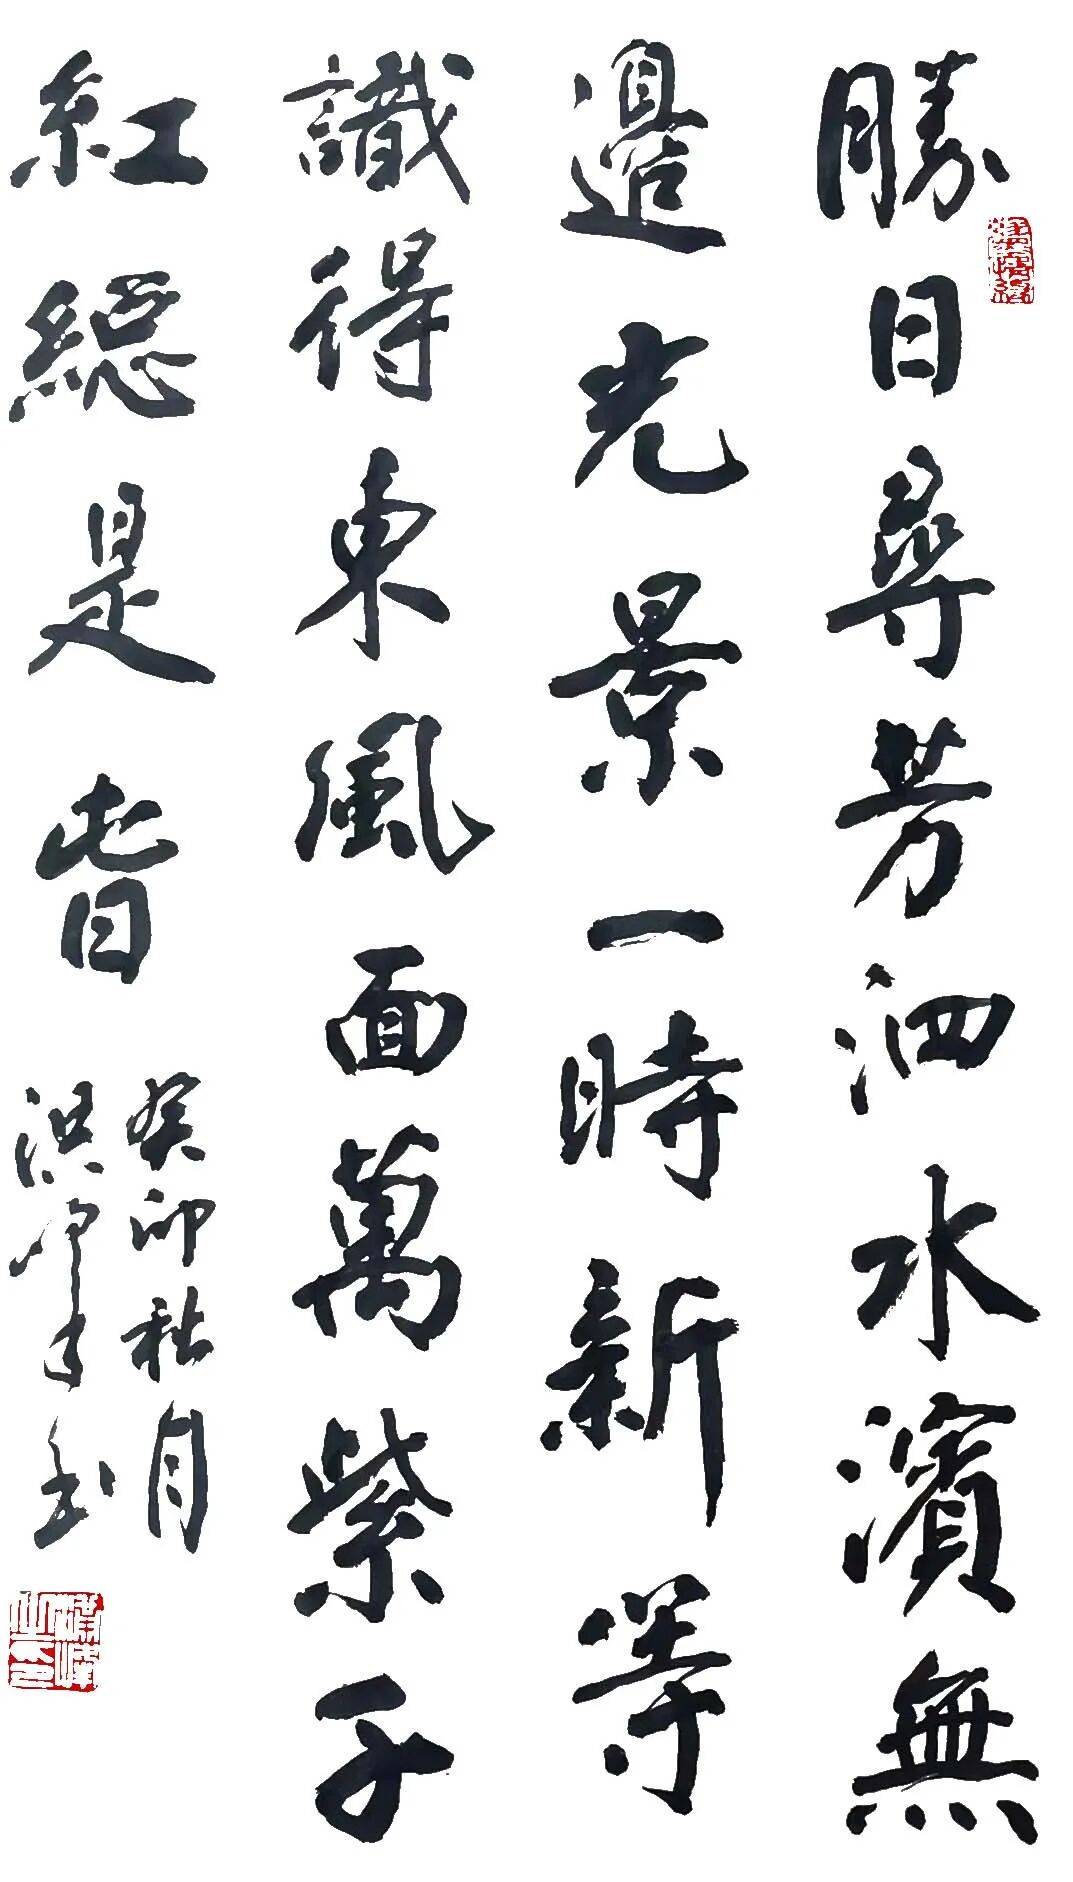 勝日尋芳泗水濱無
邊光景一時新等
識得東風面萬紫子
紅總是旾
癸卯秋月